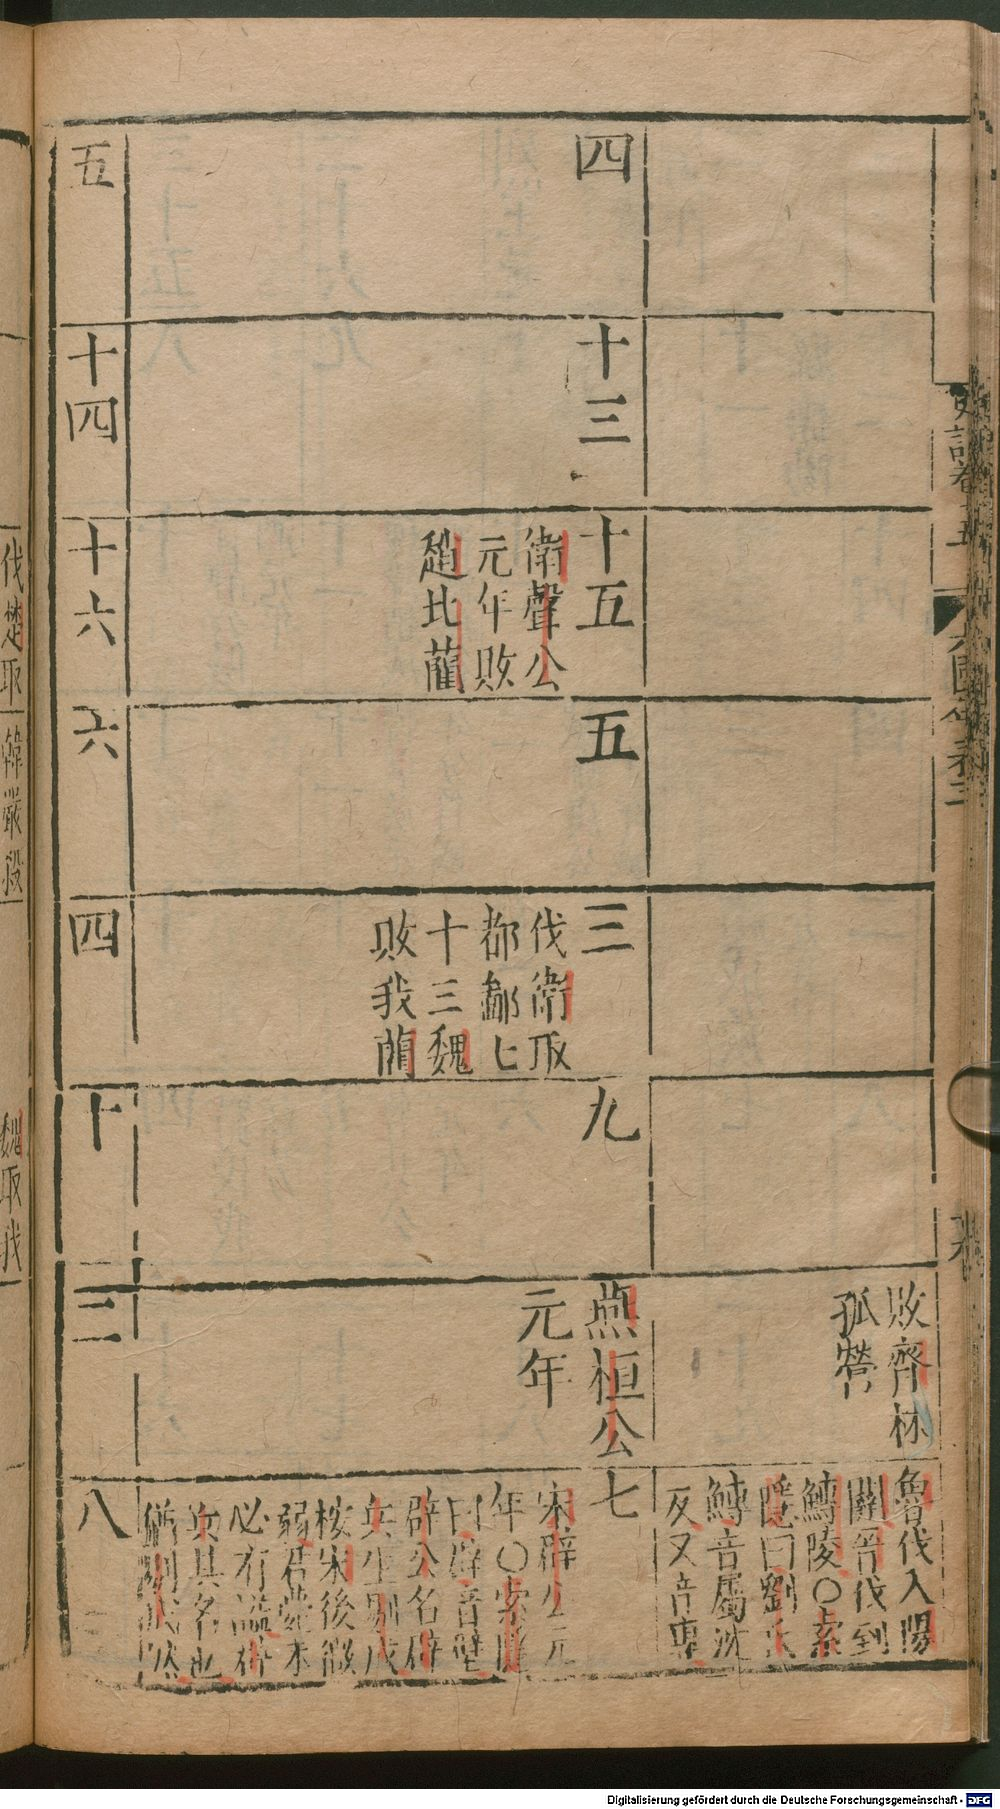 敗齊林
孤營
魯伐入陽
關晉伐到
鱄陵○索
隱曰劉氏
鱄音屬沇
反又音專
四
十三
十五
衛聲公
元年敗
趙北藺
五
三
伐衛取
都鄙七
十三魏
敗我藺
九
燕桓公
元年
七
宋辟公元
年○索隱
曰辟音壁
辟公名辟
兵生剔成
按宋後微
弱君薨未
必有謚辟
兵其名也
猶剔成然
五
十四
十六
六
四
十
三
八
伐楚取
韓嚴殺
魏取我
Digitalisierung gefördert durch die Deutsche Forschungsgemeinschaft - DFG